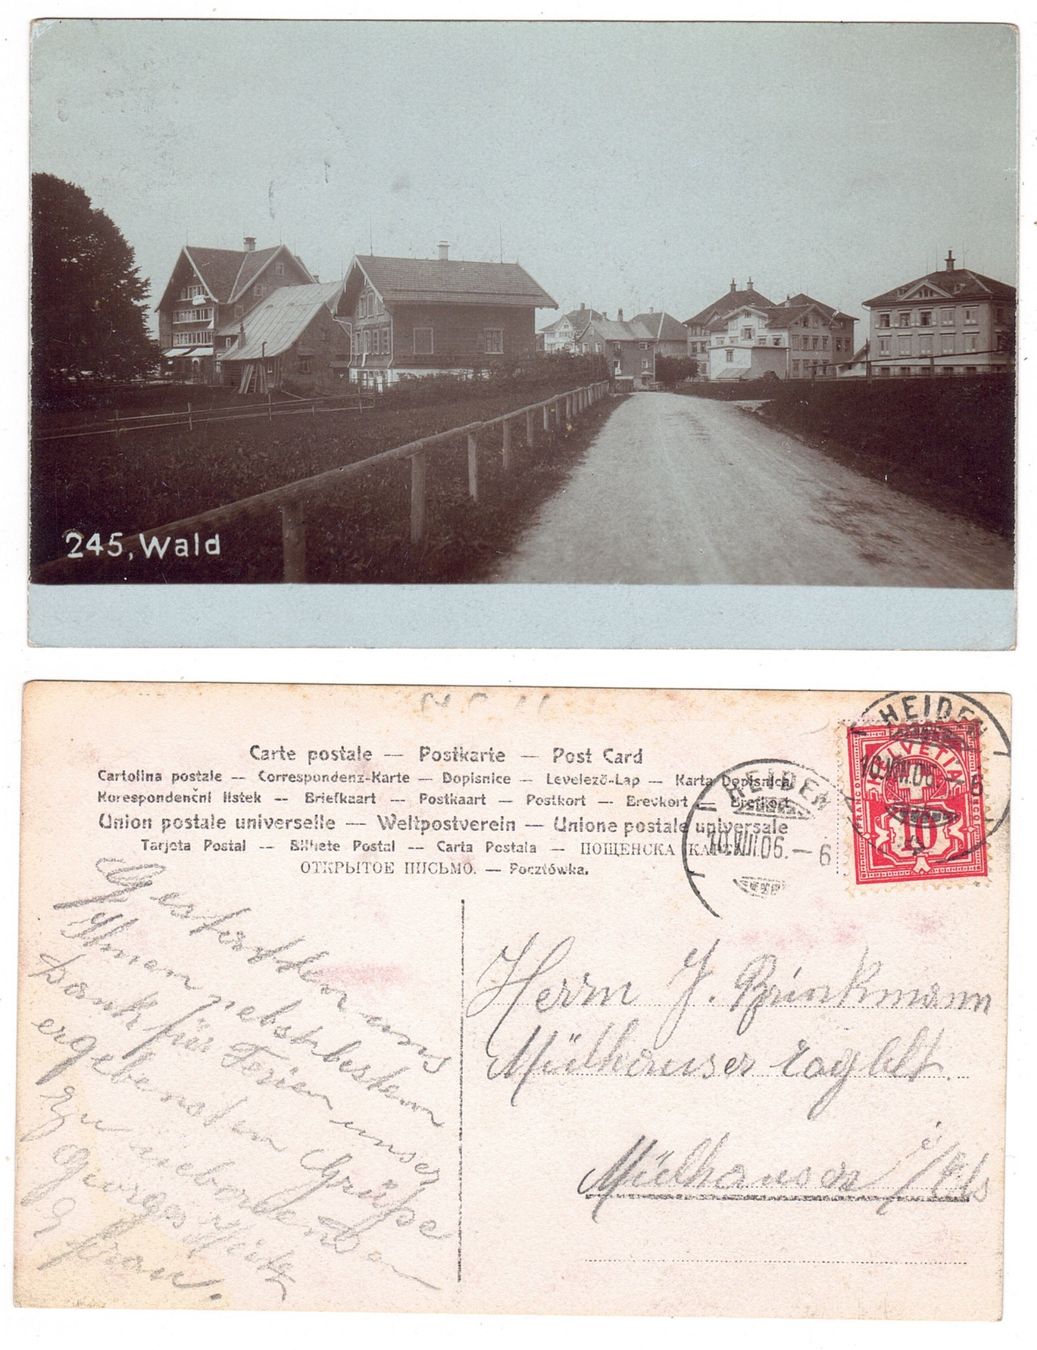 245, Wald
Carte postale — Postkarte — Post Card
Cartolina postale — Correspondenz-Karte — Dopisnice — Levelező-Lap — Karta Dopisnica
Korespondenční listek — Briefkaart — Postkaart — Postkort — Brevkort — Brefkort
Union postale universelle — Weltpostverein — Unione postale universale
Tarjeta Postal — Bilhete Postal — Carta Postala — ПОЩЕНСКА КАРТА
ОТКРЫТОЕ ПИСЬМО. — Pocztówka.
HEIDEN
10.VIII.06.–6
HEIDEN
10.VIII.06.–6
HELVETIA
FRANCO
10
Gestatten uns
Ihnen nebst bestem
Dank für Ferien unser
ergebensten Grüße
zu
Georges
& Frau.
Herrn J. Brinkmann
Mülhauser
Mülhausen i/Els